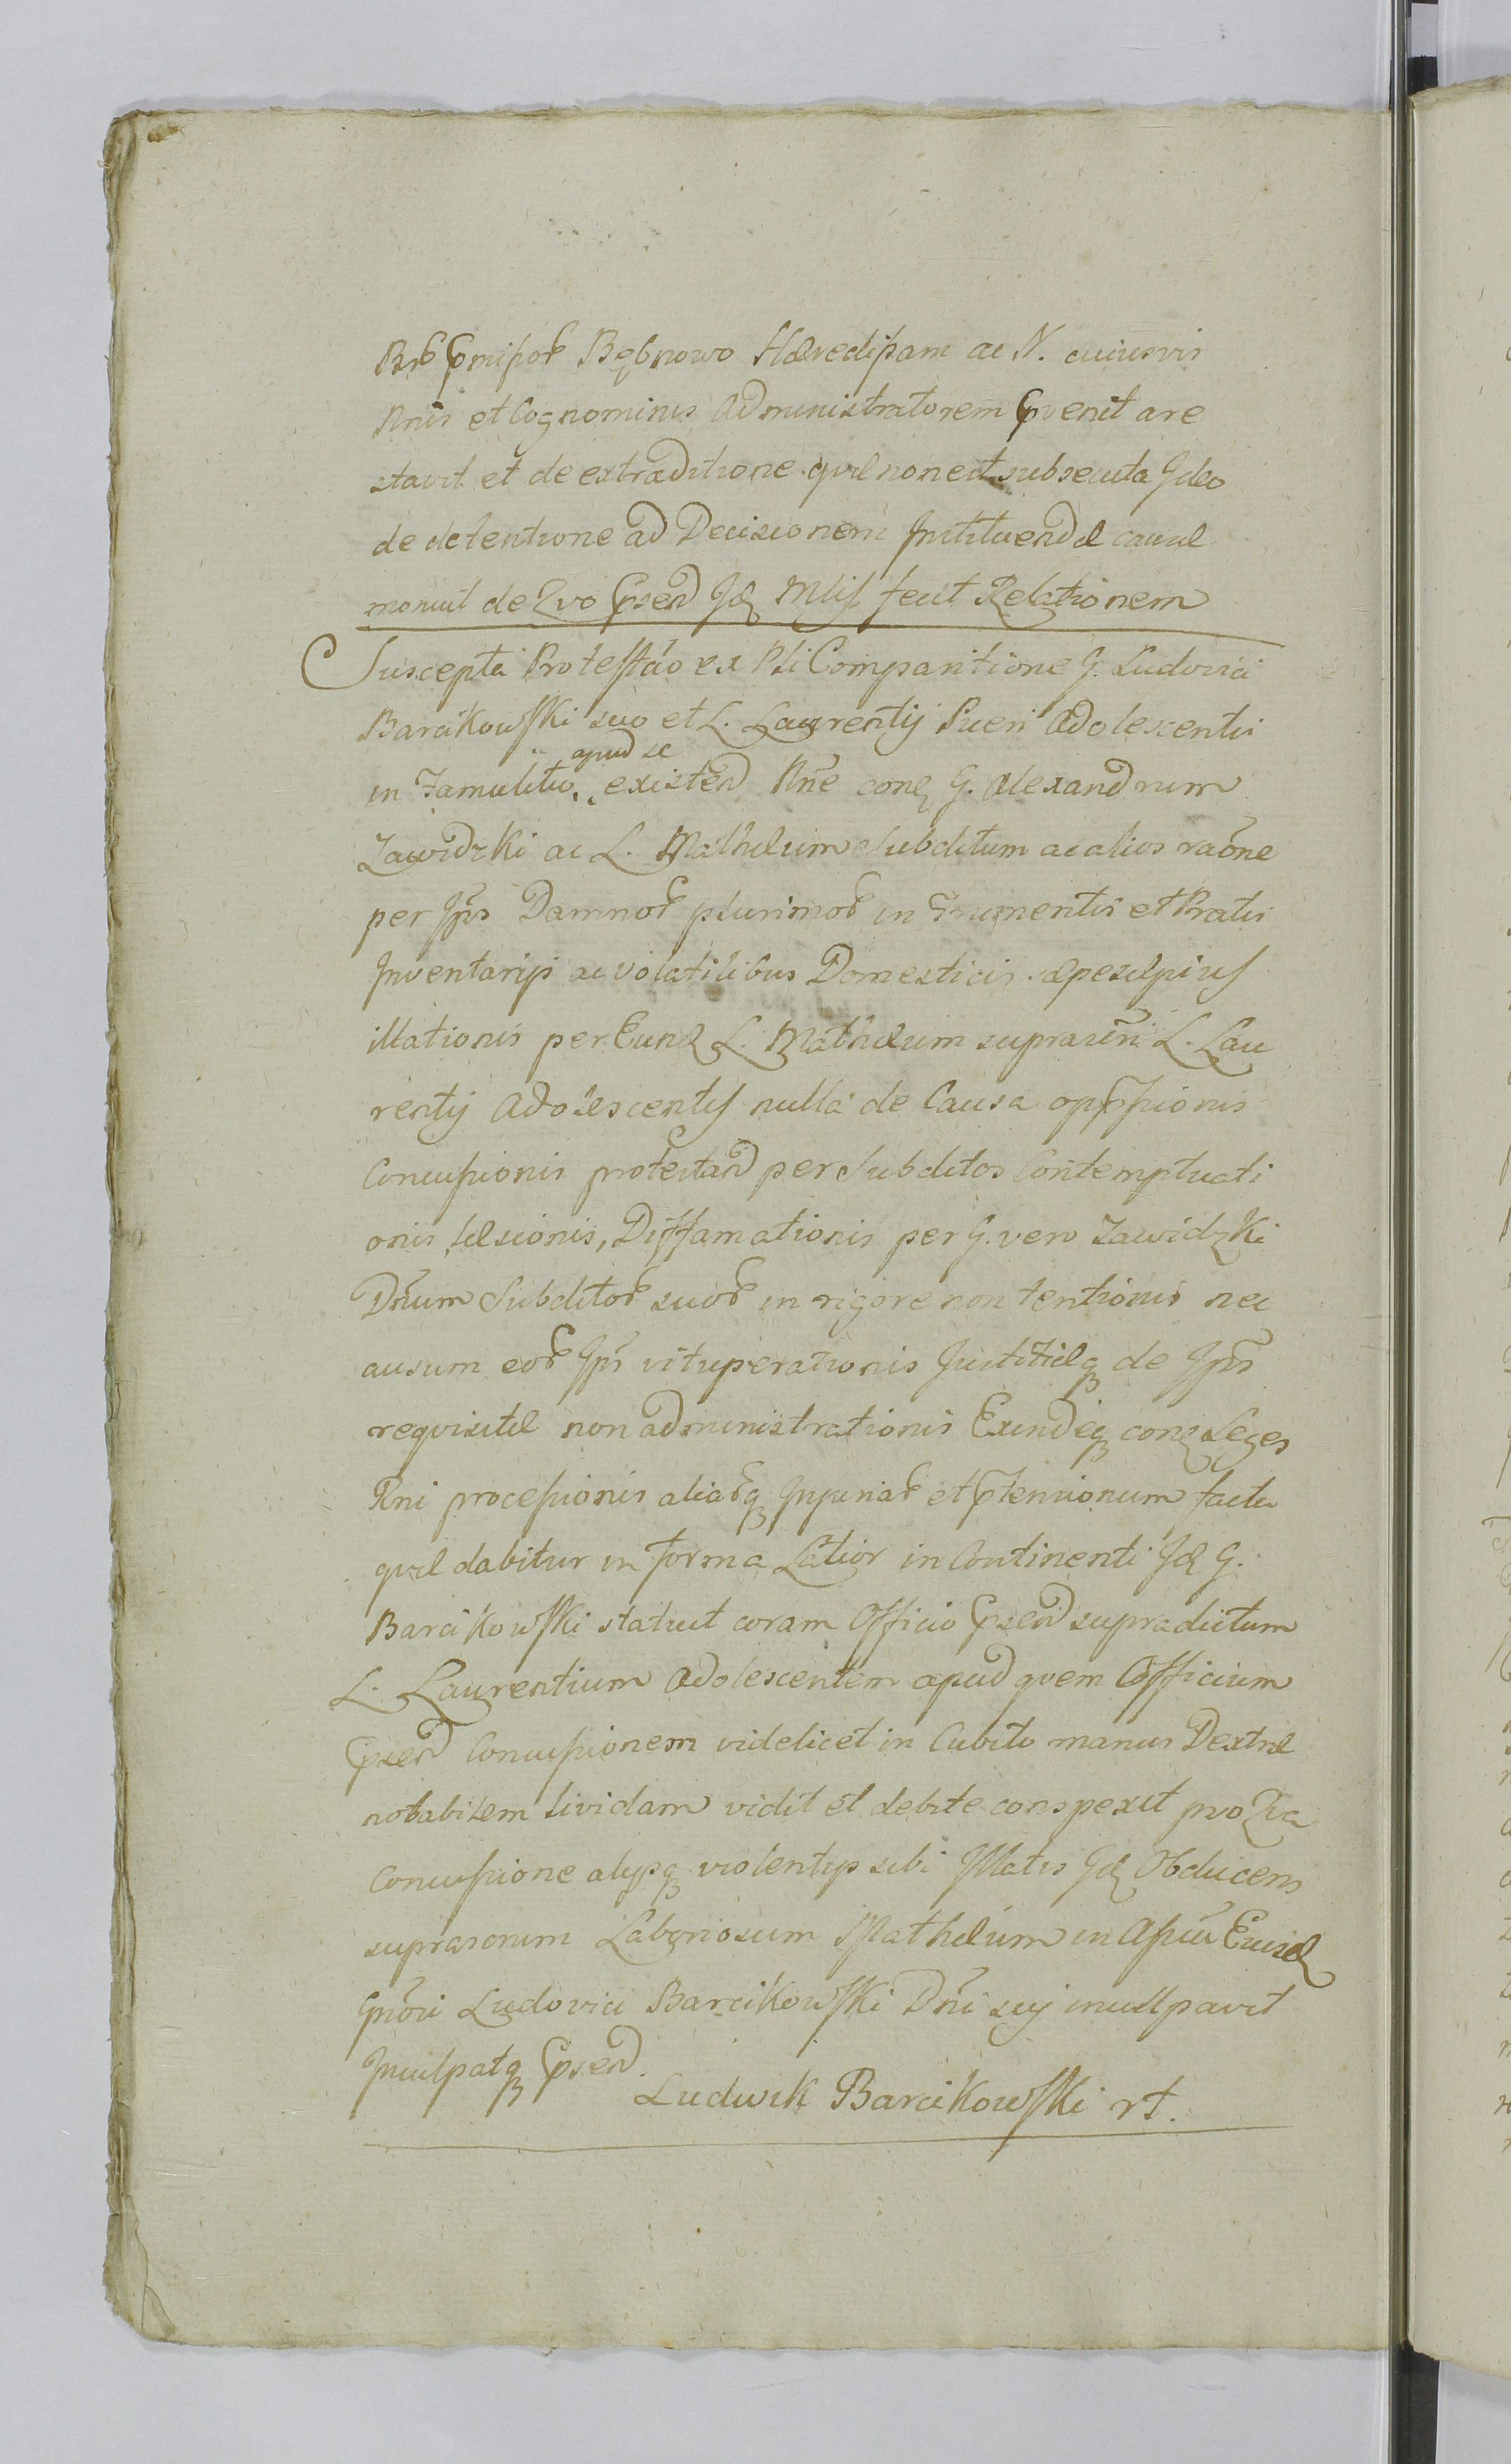 Brębnowo Hæredissam ac N. cuiusvis
Nnis et Cognominis Administratorem pvenit are
stavit et de extraditione quæ non est subsecuta Ideo
de detentione ad Decisionem Instituendæ causæ
monuit de Quo Pnsen Idē Mlis fecit Relationem
Suscepta Protestāo ex Psli Comparitione G. Ludovici
Barcikowski suo et L. Laurentij Pueri Adolescentis
in Famulitio apud se existen Nne conq G. Alexandrum
Zawidzki ac L. Mathæum Subditum ac alios raōne
per Ipsos Damnor plurimor in Frumentis et Pratis
Inventarijs ac volatilibus Domesticis sæpesæpius
illationis per Eund L. Mathæum suprascri L. Lau
rentij Adolescentis nulla de Causa oppssionis
Concussionis protestan per Subditos Contemptuati
onis, læsionis, Diffamationis per G. vero Zawidzki
Dnum Subditor suor in rigore non tentionis nec
ausum eor Ips vituperationis Justitiæq de Ipsis
requisitæ non administrationis Exindeq conq Leges
Rni processionis aliarq Injuriar et Ptensionum facta
quæ dabitur in forma Latior in Continenti Idē G.
Barcikowski statuit coram Officio Psen supradictum
L. Laurentium Adolescentem apud quem Officium
Psen Concussionem videlicet in Cubito manus Dextræ
notabilem lividam vidit et debite conspexit pro Qua
Concussione alijsq violentijs sibi Illatis Idē Obducens
suprascrum Laboriosum Mathæum in Assiis Eiusd
Gnosi Ludovici Barcikowski Dni sui inculpavit
Inculpatq Psen.
Ludwik Barcikowski rt.